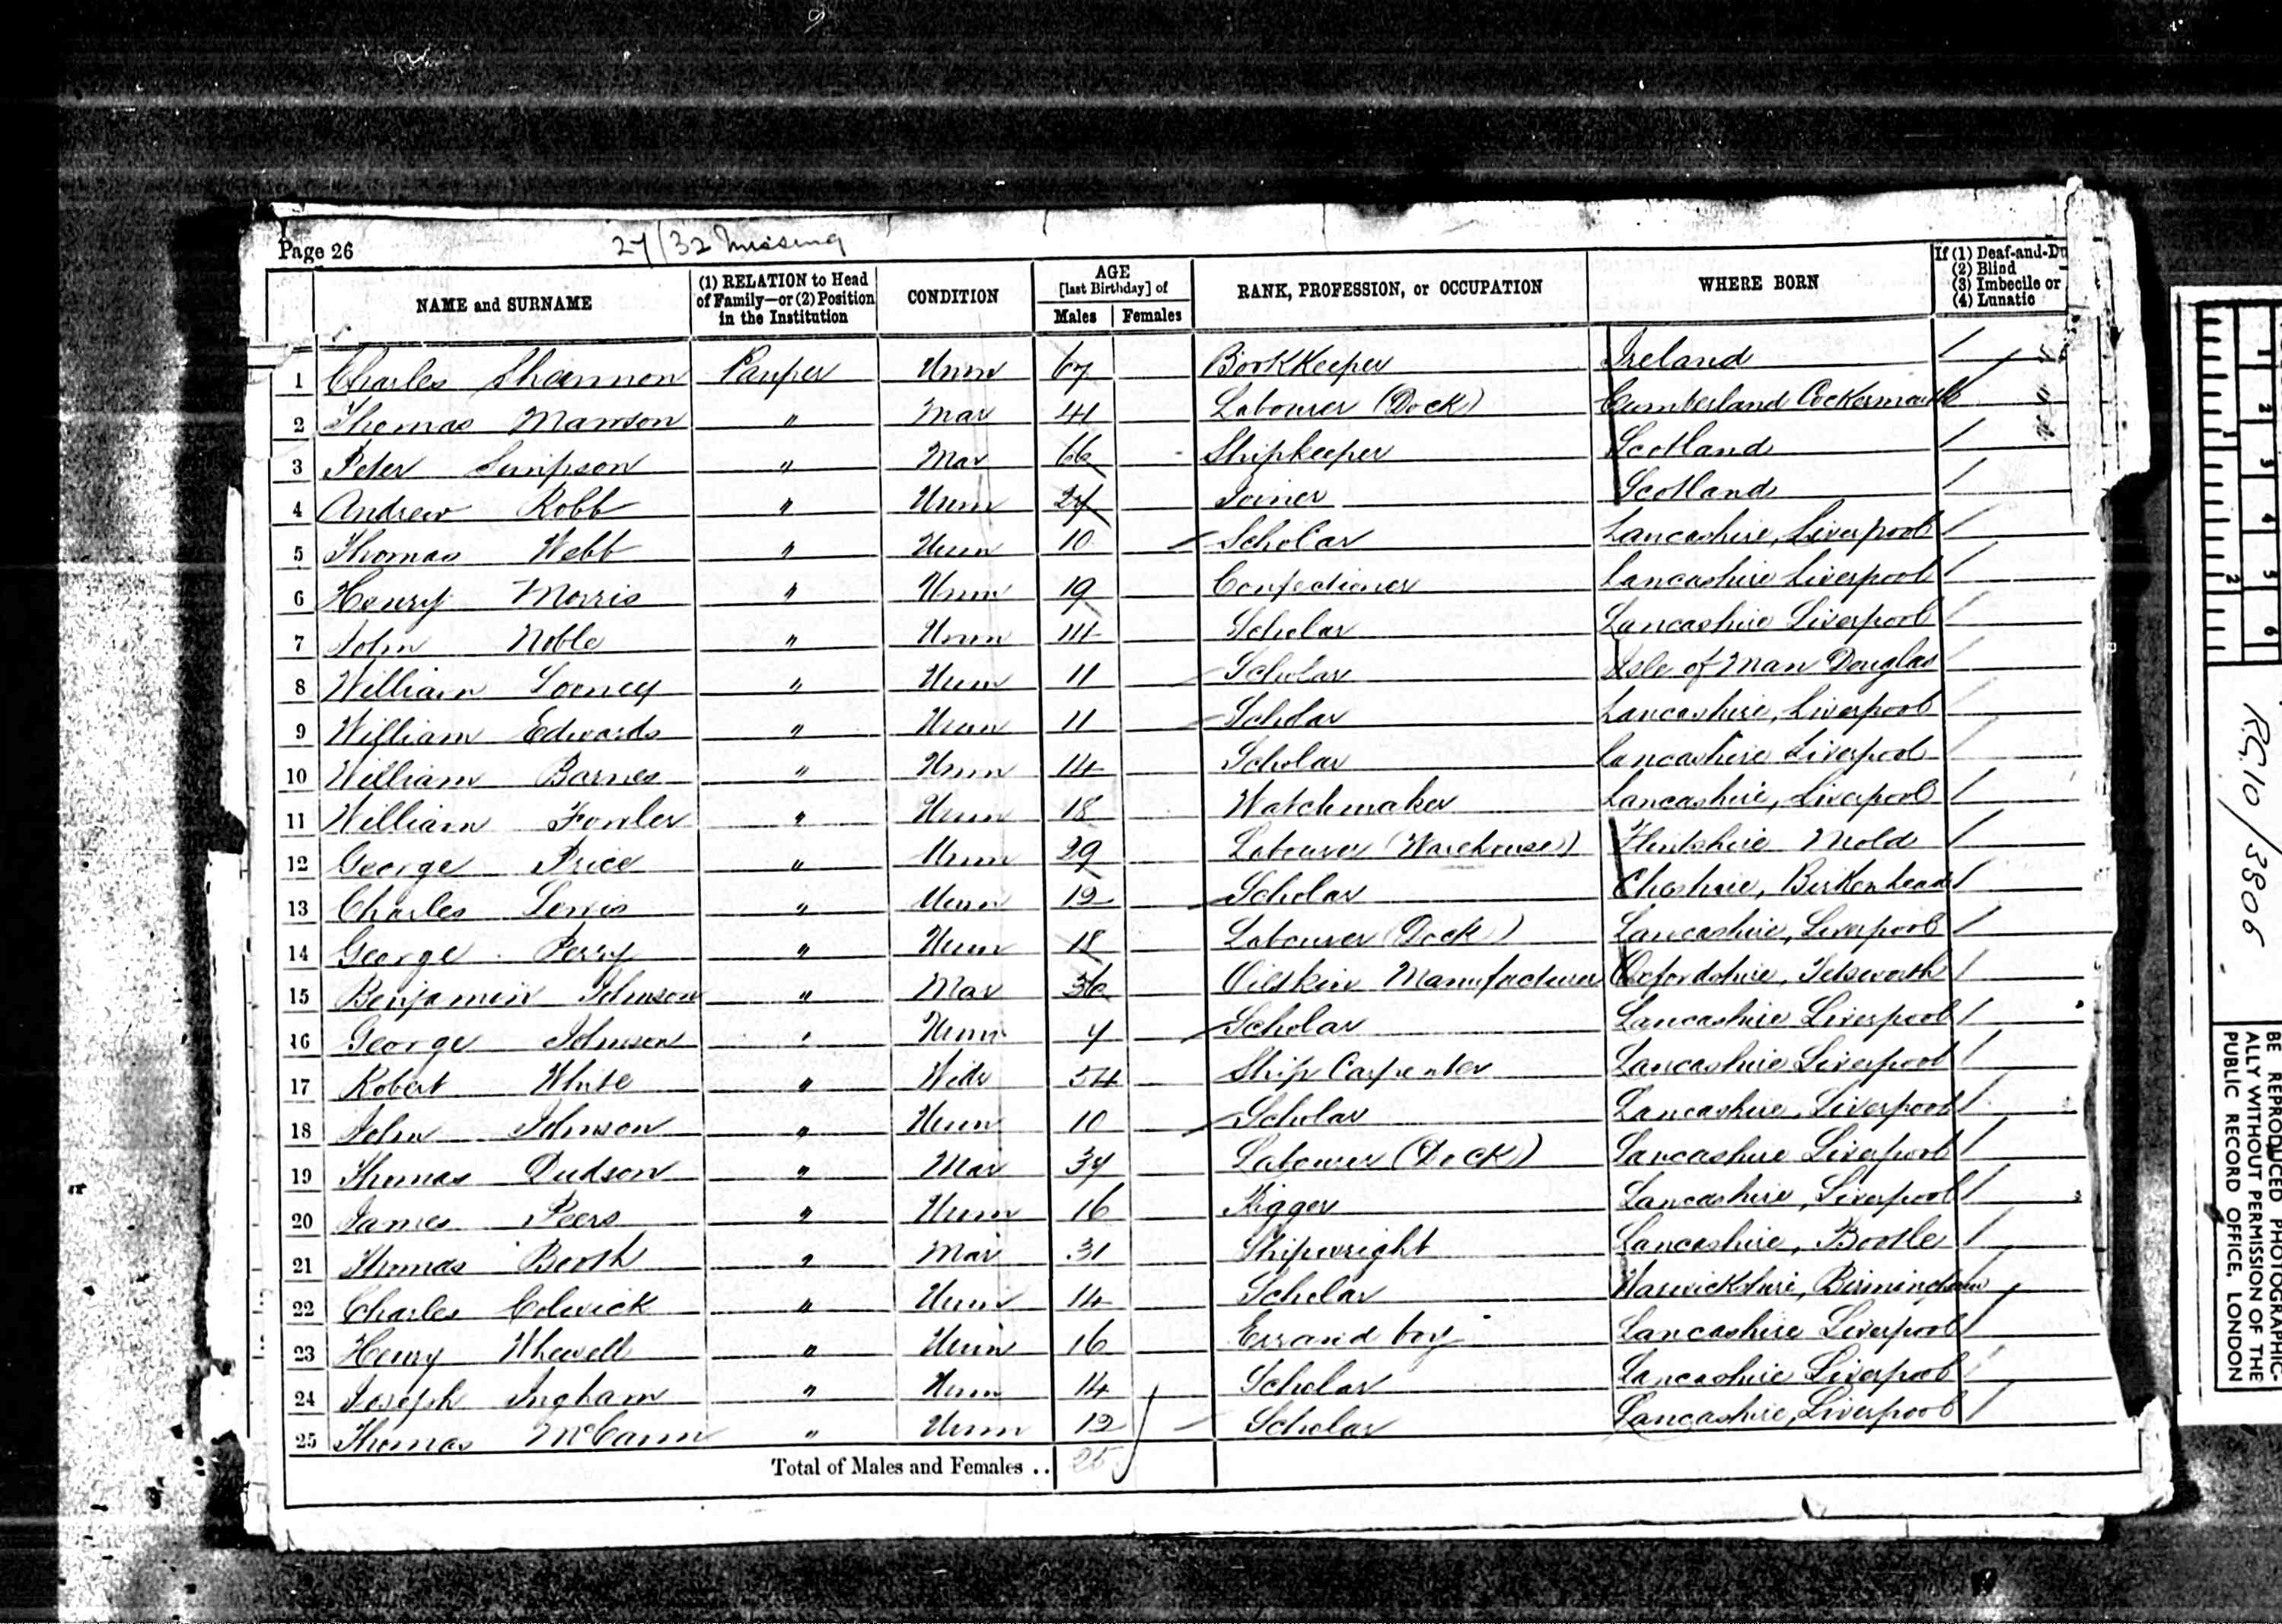 Page 26
27/32 Missing
NAME and SURNAME | (1) RELATION to Head of Family—or (2) Position in the Institution | CONDITION | AGE [last Birthday] of Males | Females | RANK, PROFESSION, or OCCUPATION | WHERE BORN | If (1) Deaf-and-Du (2) Blind (3) Imbecile or (4) Lunatic
1 Charles Shannon Pauper Unm 67 Bookkeeper Ireland
2 Thomas Mawson " Mar 41 Labourer (Dock) Cumberland Cockermouth
3 Peter Simpson " Mar 66 Shipkeeper Scotland
4 Andrew Robb " Unm 27 Joiner Scotland
5 Thomas Webb " Unm 10 Scholar Lancashire, Liverpool
6 Henry Morris " Unm 19 Confectioner Lancashire Liverpool
7 John Noble " Unm 14 Scholar Lancashire Liverpool
8 William Looney " Unm 11 Scholar Isle of Man Douglas
9 William Edwards " Unm 11 Scholar Lancashire, Liverpool
10 William Barnes " Unm 14 Scholar Lancashire Liverpool
11 William Fowler " Unm 18 Watchmaker Lancashire, Liverpool
12 George Price " Unm 29 Labourer (Warehouse) Flintshire Mold
13 Charles Lewis " Unm 12 Scholar Cheshire, Birkenhead
14 George Perry " Unm 18 Labourer (Dock) Lancashire, Liverpool
15 Benjamin Johnson " Mar 36 Oilskin Manufacturer Oxfordshire, Tetsworth
16 George Johnson " Unm 7 Scholar Lancashire Liverpool
17 Robert White " Widr 54 Ship Carpenter Lancashire Liverpool
18 John Johnson " Unm 10 Scholar Lancashire, Liverpool
19 Thomas Dudson " Mar 37 Labourer (Dock) Lancashire Liverpool
20 James Peers " Unm 16 Rigger Lancashire, Liverpool
21 Thomas Booth " Mar 31 Shipwright Lancashire, Bootle
22 Charles Colwick " Unm 14 Scholar Warwickshire, Birmingham
23 Henry Whewell " Unm 16 Errand boy Lancashire Liverpool
24 Joseph Ingham " Unm 14 Scholar Lancashire Liverpool
25 Thomas McCann " Unm 12 Scholar Lancashire, Liverpool
Total of Males and Females .. 25
1
2
3
4
5
6
1
2
RG 10/3806
BE REPRODUCED PHOTOGRAPHIC-
ALLY WITHOUT PERMISSION OF THE
PUBLIC RECORD OFFICE, LONDON